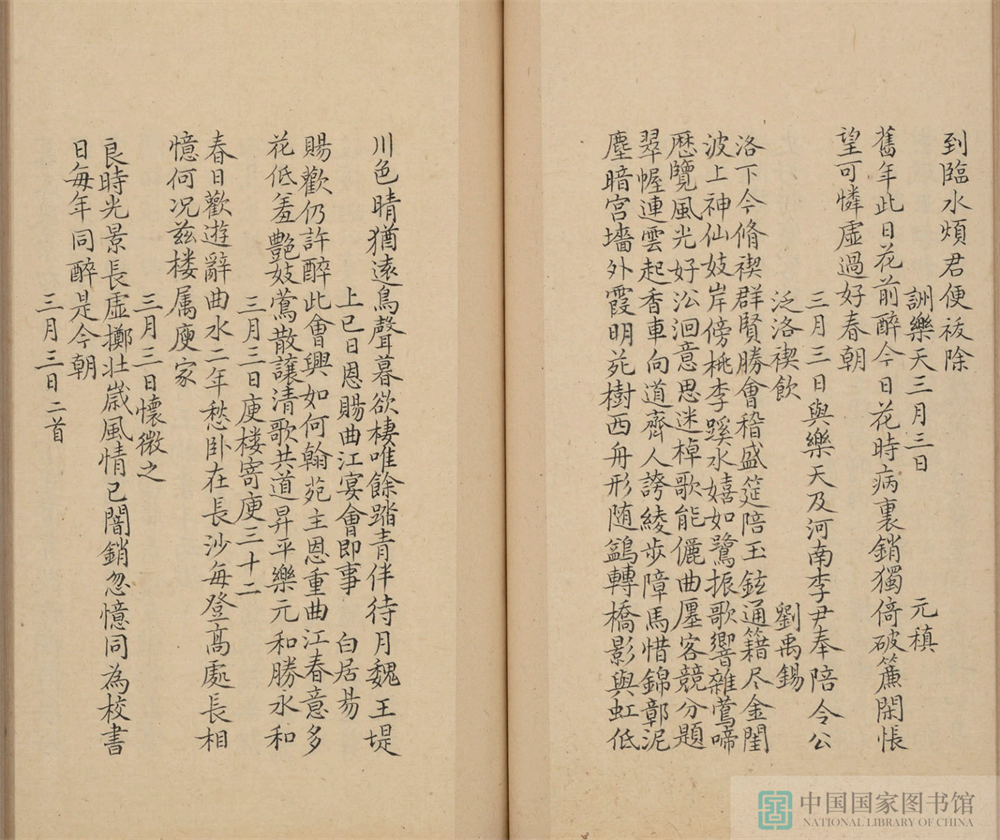 到臨水煩君便祓除
詶樂天三月三日　元稹
舊年此日花前醉今日花時病裏銷獨倚破簾閑悵
望可憐虛過好春朝
三月三日與樂天及河南李尹奉陪令公
泛洛禊飲　劉禹錫
洛下今脩禊群賢勝會稽盛筵陪玉鉉通籍尽金閨
波上神仙妓岸傍桃李蹊水嬉如鷺振歌響雜鶯啼
歷覽風光好沿洄意思迷棹歌能儷曲墨客競分題
翠幄連雲起香車向道齊人誇綾步障馬惜錦鄣泥
塵暗宮墻外霞明苑樹西舟形随鷁轉橋影與虹低
川色晴猶遠鳥聲暮欲棲唯餘踏青伴待月魏王堤
上巳日恩賜曲江宴會即事　白居易
賜歡仍許醉此會興如何翰苑主恩重曲江春意多
花低羞艷妓鶯散讓清歌共道昇平樂元和勝永和
三月三日庾楼寄庾三十二
春日歡遊辭曲水二年愁卧在長沙每登高處長相
憶何况兹楼属庾家
三月三日懷微之
良時光景長虛擲壮歲風情已闇銷忽憶同為校書
日每年同醉是今朝
三月三日二首
中国国家图书馆
NATIONAL LIBRARY OF CHINA